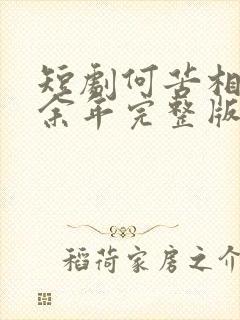 短剧何苦相
余年完整版
稻荷家房之介